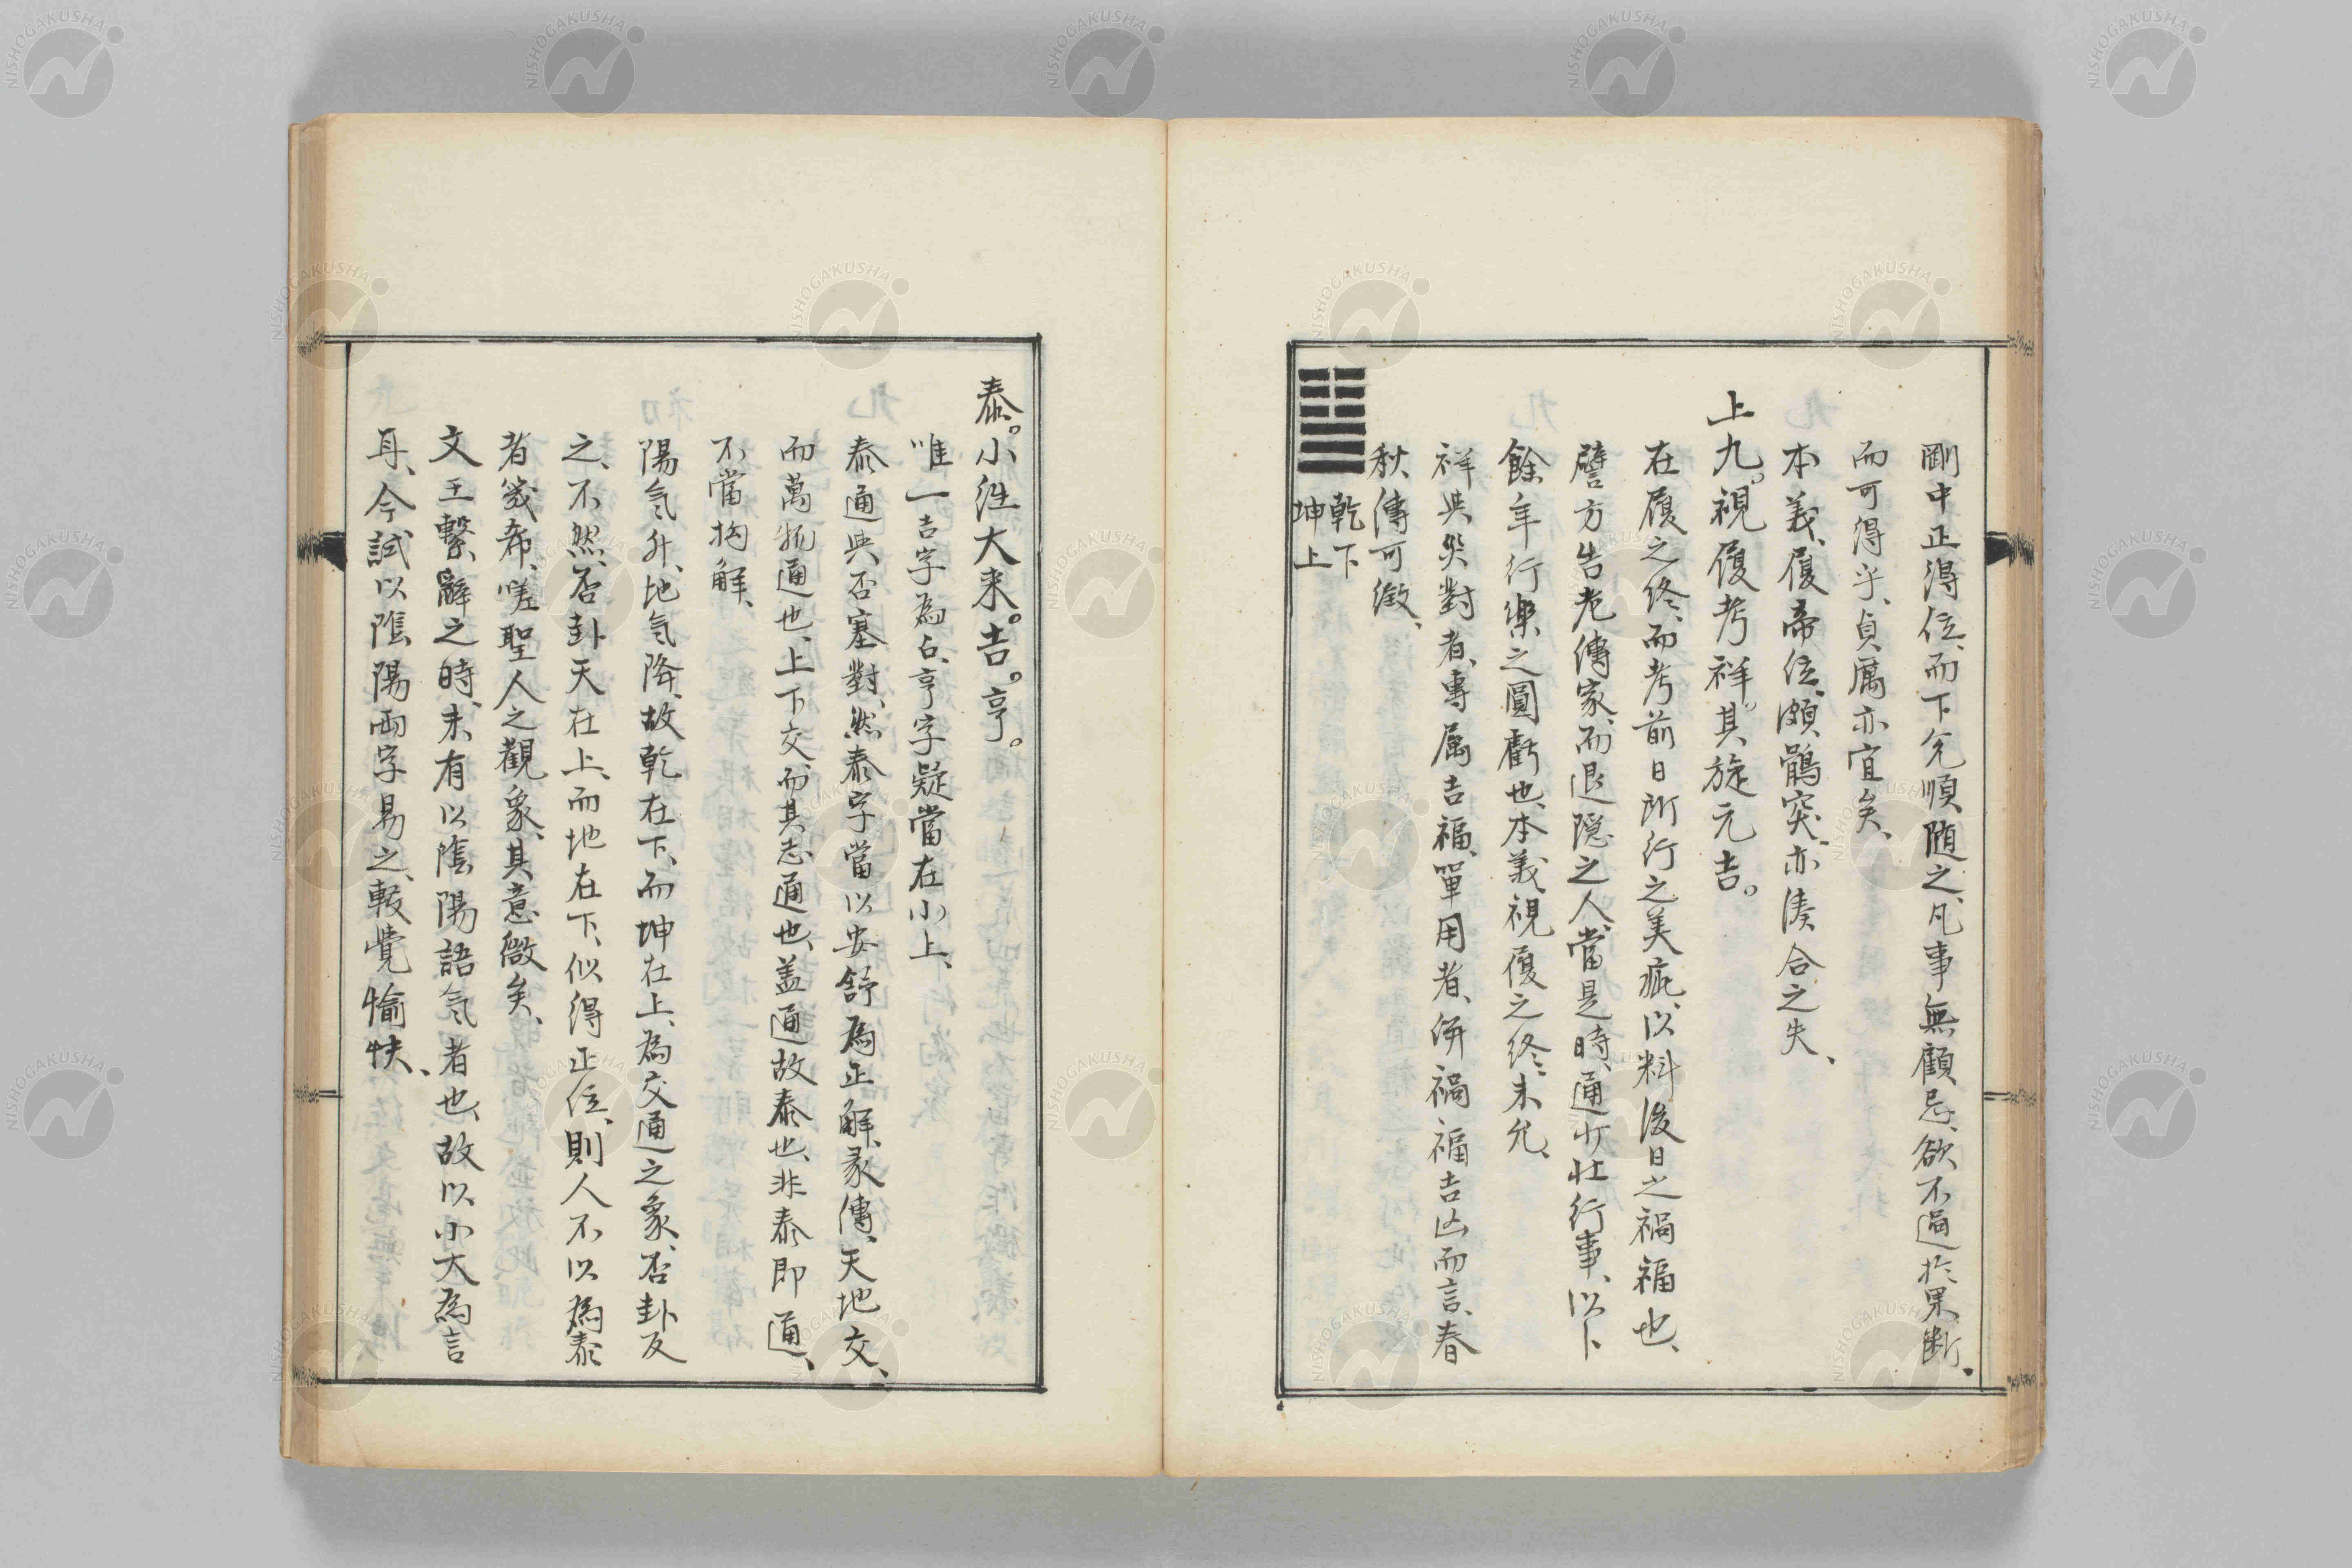 剛中正得位、而下兌順随之、凡事無顧忌、欲不過於果断、
而可得乎、貞厲亦宜矣、
本義、履帝位、頗鶻突、亦湊合之失、
上九。視履考祥。其旋元吉。
在履之終、而考前日所行之美疵、以料後日之禍福也、
譬方告老傳家、而退隠之人、當是時、通少壮行事、以卜
餘年行樂之圓虧也、本義視履之終、未允、
祥與災對者、專属吉福、單用者、併禍福吉凶而言、春
秋傳可徴、
乾下
坤上
泰。小往大来。吉。亨。
唯一吉字為占、亨字疑當在小上、
泰通與否塞對、然泰字當以安舒為正解、彖傳、天地交、
而萬物通也、上下交、而其志通也、盖通故泰也、非泰即通、
不當拘解、
陽気升、地気降、故乾在下、而坤在上、為交通之象、否卦反
之、不然、否卦天在上、而地在下、似得正位、則人不以為泰
者幾希、嗟聖人之觀象、其意微矣、
文王繫辭之時、未有以陰陽語気者也、故以小大為言
耳、今試以陰陽両字易之、較覺愉快、
NISHOGAKUSHA